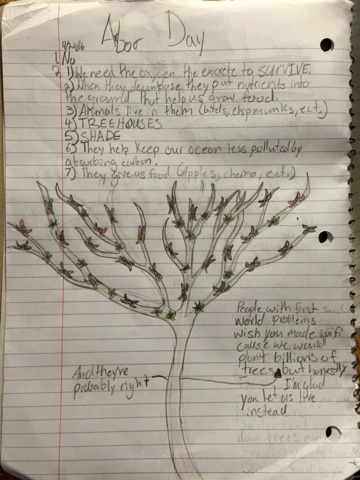 Arbor Day
1) No
2. 1) We need the oxygen the excrete to SURVIVE.
2) When they decompose they put nutrients into
the ground that help us grow food.
3) Animals live in them (birds, chipmunks, ect.)
4) TREEHOUSES
5) SHADE
6) They help keep our ocean less polluted by
absorbing carbon.
7) They give us food (Apples, cherrie, ect.)
People with first
world problems
wish you made
cause we would
plant billions of
trees but honestly
I'm glad
you let us live
instead
And they're
probably right